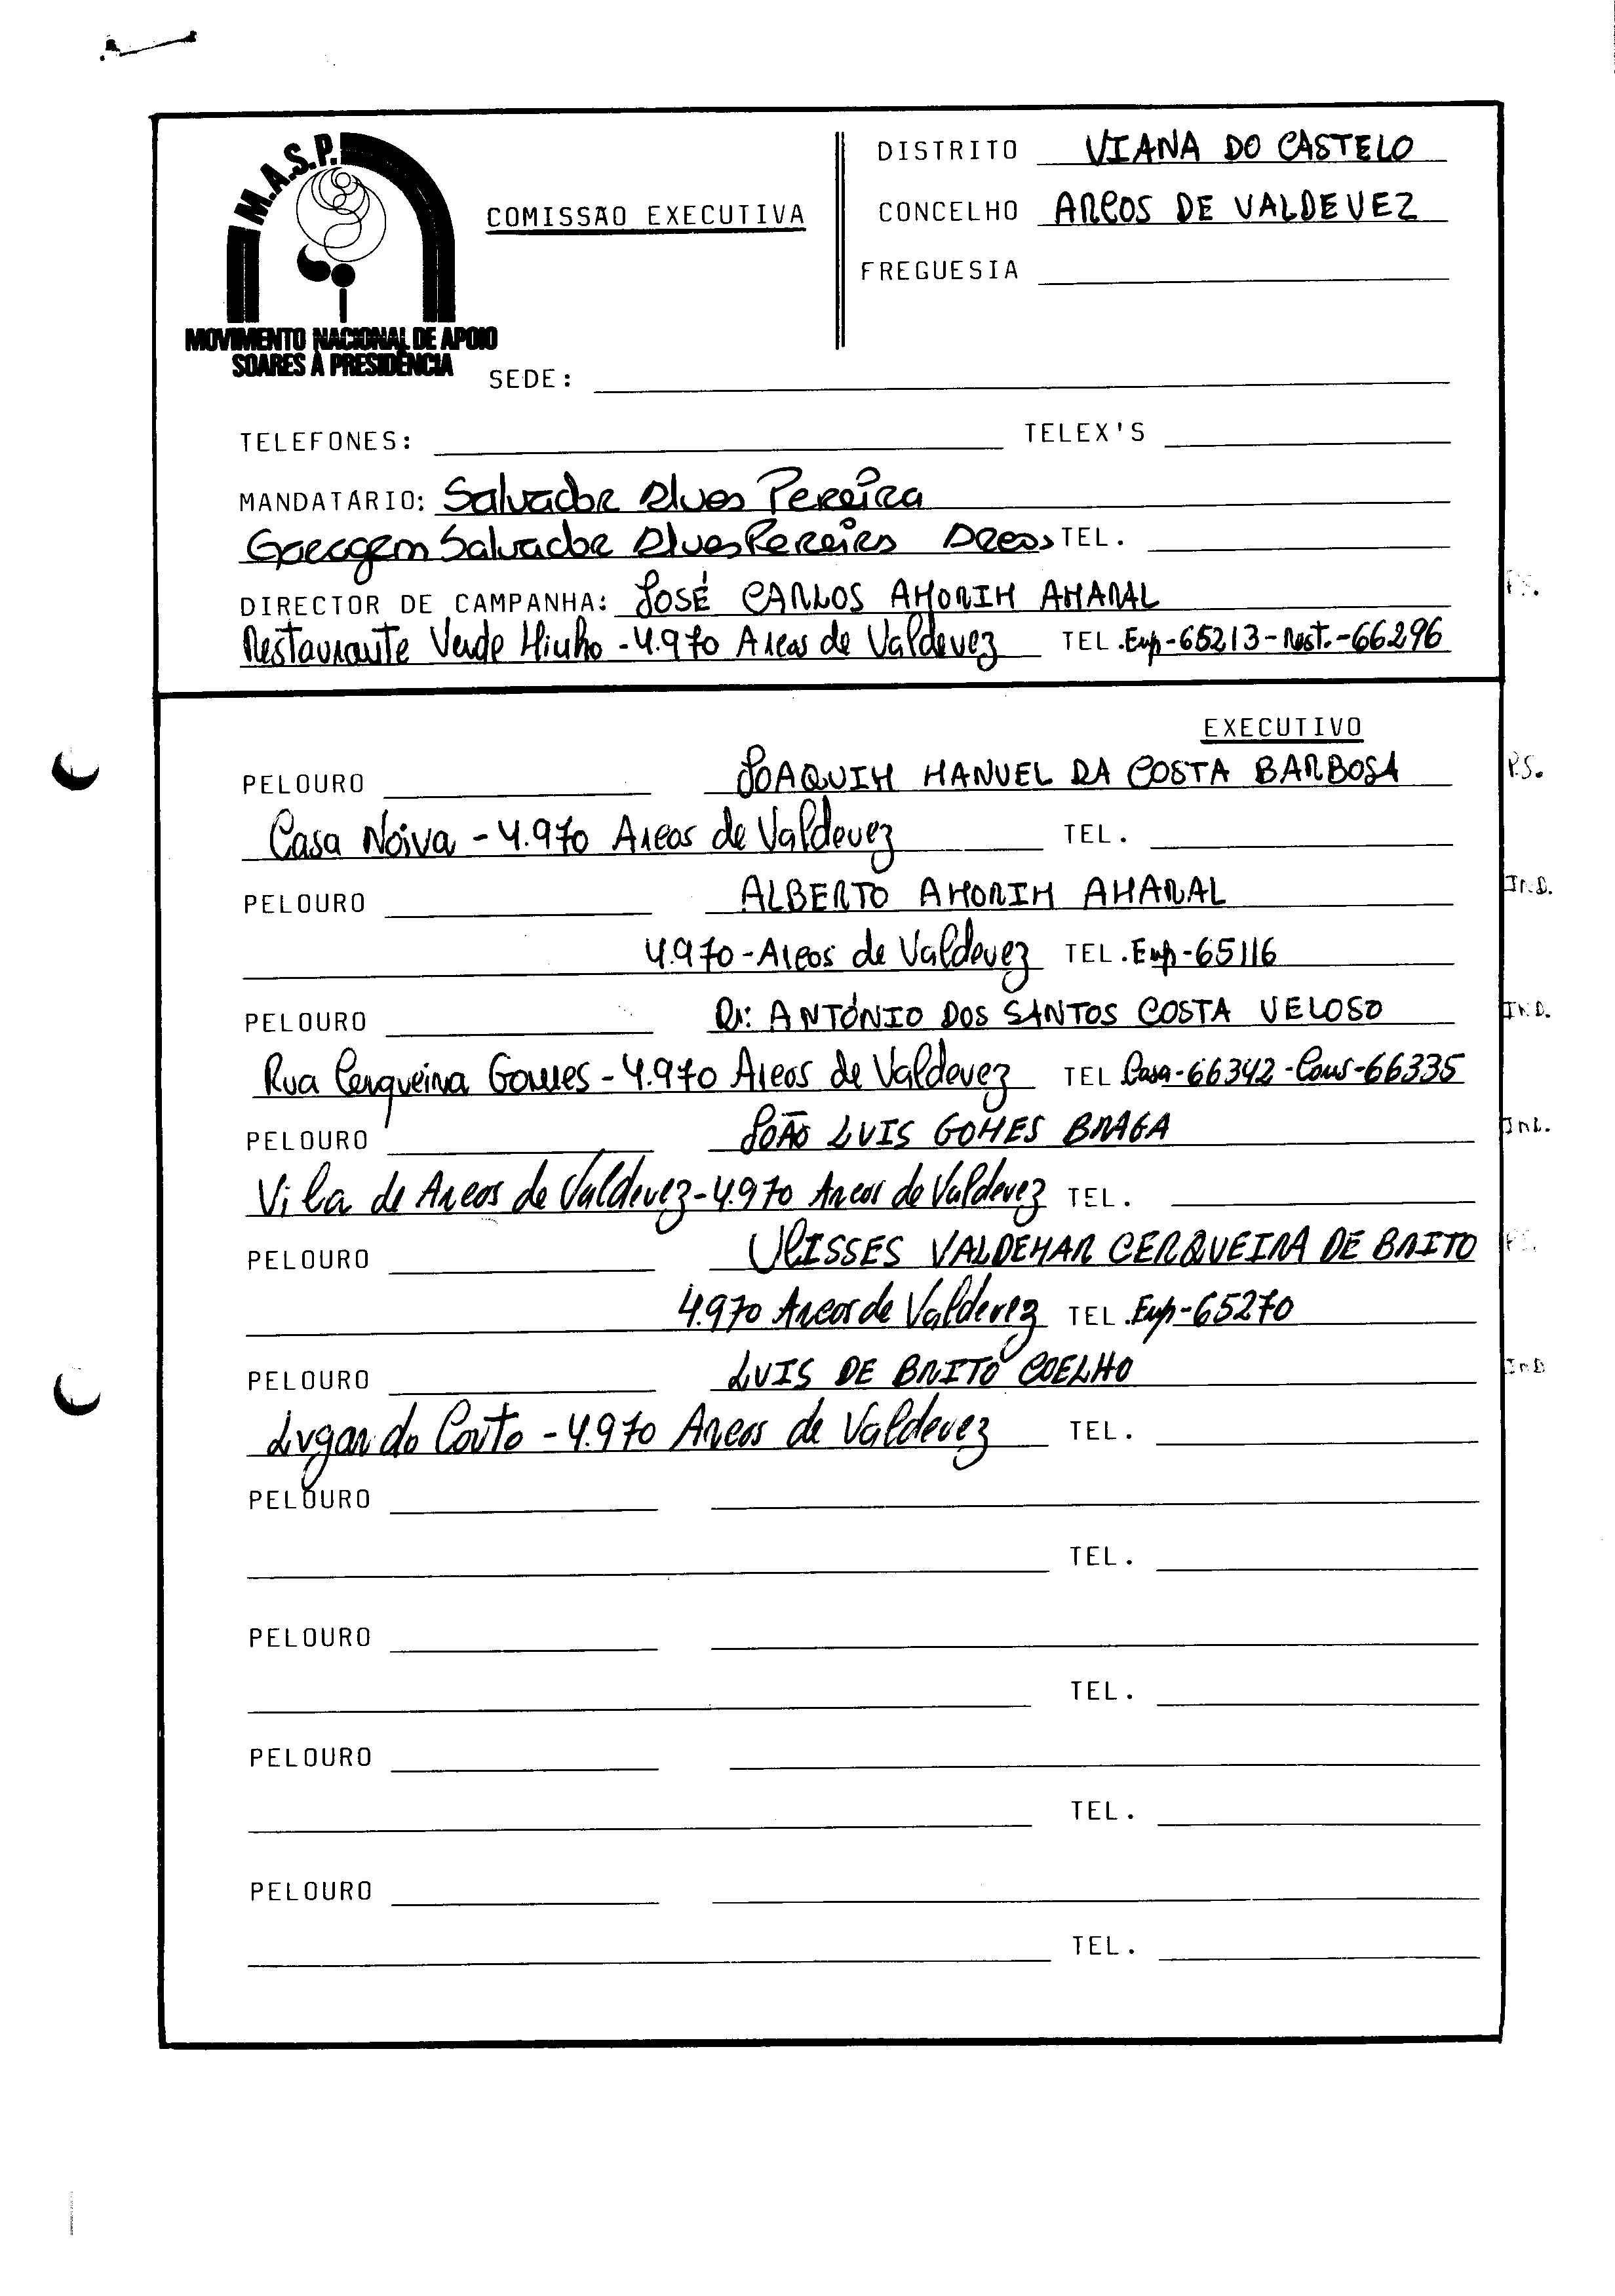 M.A.S.P.
MOVIMENTO NACIONAL DE APOIO
SOARES À PRESIDÊNCIA
COMISSÃO EXECUTIVA
DISTRITO VIANA DO CASTELO
CONCELHO ARCOS DE VALDEVEZ
FREGUESIA
SEDE:
TELEFONES: TELEX'S
MANDATÁRIO: Salvador Alves Pereira
Garagem Salvador Alves Pereira Arcos TEL.
DIRECTOR DE CAMPANHA: JOSÉ CARLOS AMORIM AMARAL P.S.
Restaurante Verde Minho - 4.970 Arcos de Valdevez TEL. Emp-65213-Rest.-66296
EXECUTIVO
PELOURO JOAQUIM MANUEL DA COSTA BARBOSA P.S.
Casa Noiva - 4.970 Arcos de Valdevez TEL.
PELOURO ALBERTO AMORIM AMARAL IND.
4.970 - Arcos de Valdevez TEL. Emp-65116
PELOURO Dr: ANTÓNIO DOS SANTOS COSTA VELOSO IND.
Rua Cerqueira Gomes - 4.970 Arcos de Valdevez TEL Casa-66342-Cons-66335
PELOURO JOÃO LUIS GOMES BRAGA Ind.
Vila de Arcos de Valdevez - 4.970 Arcos de Valdevez TEL.
PELOURO ULISSES VALDEMAR CERQUEIRA DE BRITO P.S.
4.970 Arcos de Valdevez TEL. Emp-65270
PELOURO LUIS DE BRITO COELHO InD
Lugar do Couto - 4.970 Arcos de Valdevez TEL.
PELOURO
TEL.
PELOURO
TEL.
PELOURO
TEL.
PELOURO
TEL.